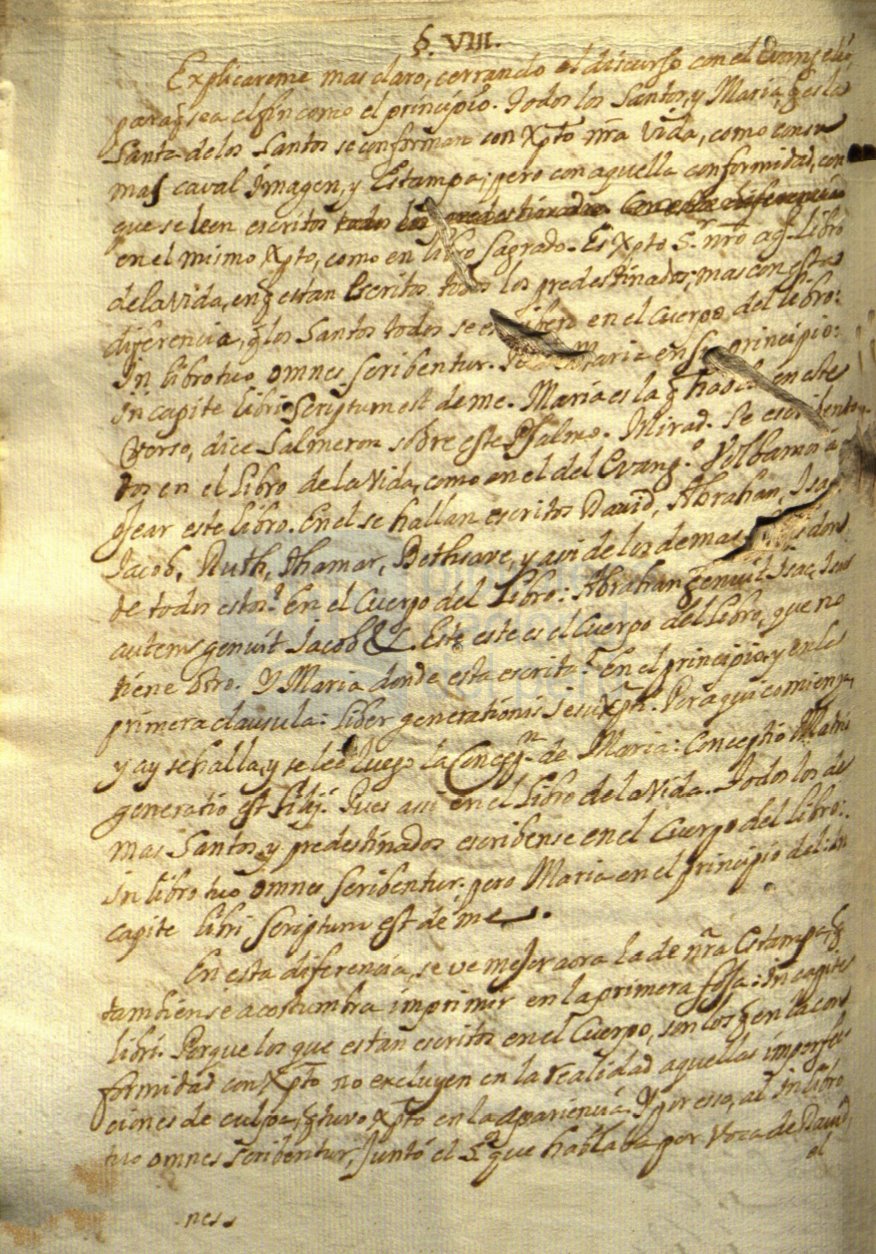 §. VIII.
Explicareme mas claro, cerrando el discurso con el Evangelio,
para q̃ sea el fin como el principio. Todos los Santos, y Maria, q̃ es la
Santa de los Santos se conforman con Xp̃to nr̃a Vida, como con su
mas caval Imagen, y Estampa; pero con aquella conformidad, con
que se leen escritos todos los predestinados. Con esta diferencia
en el mismo Xp̃to, como en libro Sagrado. Es Xp̃to S.r nr̃o aq̃l Libro
de la Vida, en q̃ estan Escritos todos los predestinados; mas con esta
diferencia, q̃ los Santos todos se en el Cuerpo del libro:
In libro tuo omnes scribentur. Maria en su principio:
in capite libri Scriptum est de me. Maria es la q̃ habla en este
Verso, dice Salmeron sobre este Psalmo. Mirad. Se escriben to-
dos en el Libro de la Vida, como en el del Evang.o Volbamos à
ojear este libro. En el se hallan escritos David, Abrahan, Isac
Jacob, Ruth, Thamar, Bethsave, y asi de los demas donde
de todos estos? En el Cuerpo del Libro: Abrahan genuit Isac, Isac
autem genuit Jacob &c. Este este es el Cuerpo del Libro, que no
tiene otro. Y Maria donde esta escrita? en el principio, y en la
primera clausula: Liber generationis Iesu Xp̃ti. Por aqui comienza,
y ay se halla, y se lee luego la Concepp.n de Maria: Conceptio Matris
generatio est Filij. Pues asi en el Libro de la Vida. Todos los de
mas Santos, y predestinados escribense en el Cuerpo del libro:
in libro tuo omnes scribentur: pero Maria en el principio del: In
capite libri Scriptum est de me.
En esta diferencia, se ve mejor aora la de nr̃a Estampa, q̃
tambien se acostumbra imprimir en la primera foja: in capite
libri. Porque los que estan escritos en el Cuerpo, son los q̃ en la con
formidad con Xp̃to no excluyen en la realidad aquellas imperfec
ciones de culpa, q̃ tuvo Xp̃to en la apariencia. Y por esso, al In libro
tuo omnes scribentur, juntó el S.r que hablaba por Voca de David,
el
nes